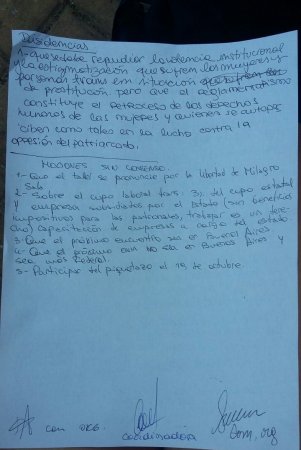 Disidencias
1- que se debe repudiar la violencia institucional
y la estigmatización que sufren las mujeres y
personas trans en situación
de prostitución pero que el reglamentarismo
constituye el retroceso de los derechos
humanos de las mujeres y quienes se autoper
ciben como tales en la lucha contra la
opresión del patriarcado.
MOCIONES SIN CONSENSO
1- Que el taller se pronuncie por la libertad de Milagro
Sala
2- Sobre el cupo laboral trans: 3% del cupo estatal
y empresas subsidiadas por el Estado (sin beneficios
impositivos para las patronales, trabajar es un dere-
cho) Capacitación de empresas a cargo del estado.
3- Que el próximo encuentro sea en Buenos Aires
4- Que el próximo ENM no sea en Buenos Aires y
sea más federal.
5- Participar del piquetazo el 18 de octubre.
coordinadora
Com. org